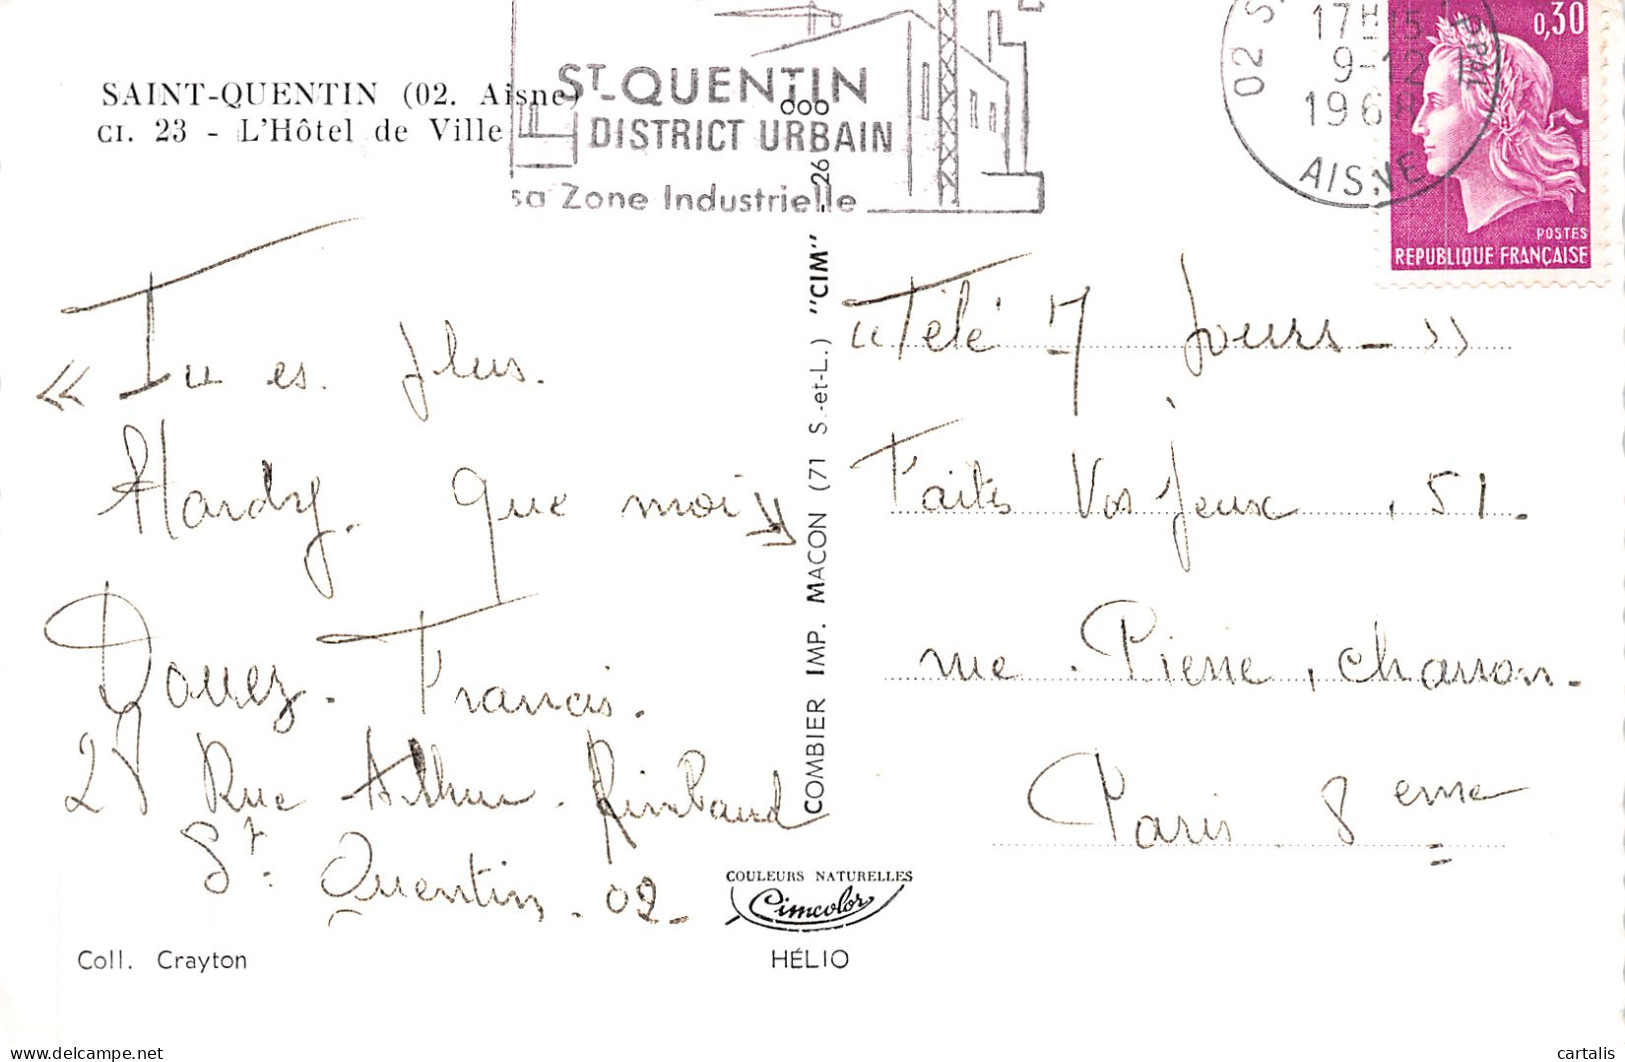 SAINT-QUENTIN (02. Aisne)
CI. 23 - L'Hôtel de Ville
ST-QUENTIN
DISTRICT URBAIN
sa Zone Industrielle
17H15
9-12
1968
02 S
AISNE
0,30
POSTES
REPUBLIQUE FRANÇAISE
« Tu es. plus.
Hardy. que moi »
Douez. Francis.
28 Rue Arthur. Rimbaud
St. Quentin. 02-
COMBIER IMP. MACON (71 S.-et-L.) "CIM"
« Télé 7 Jours - »
Faites Vos Jeux . 51.
rue . Pierre , charron.
Paris. 8 eme
COULEURS NATURELLES
Cimcolor
HÉLIO
Coll. Crayton
delcampe.net
cartalis